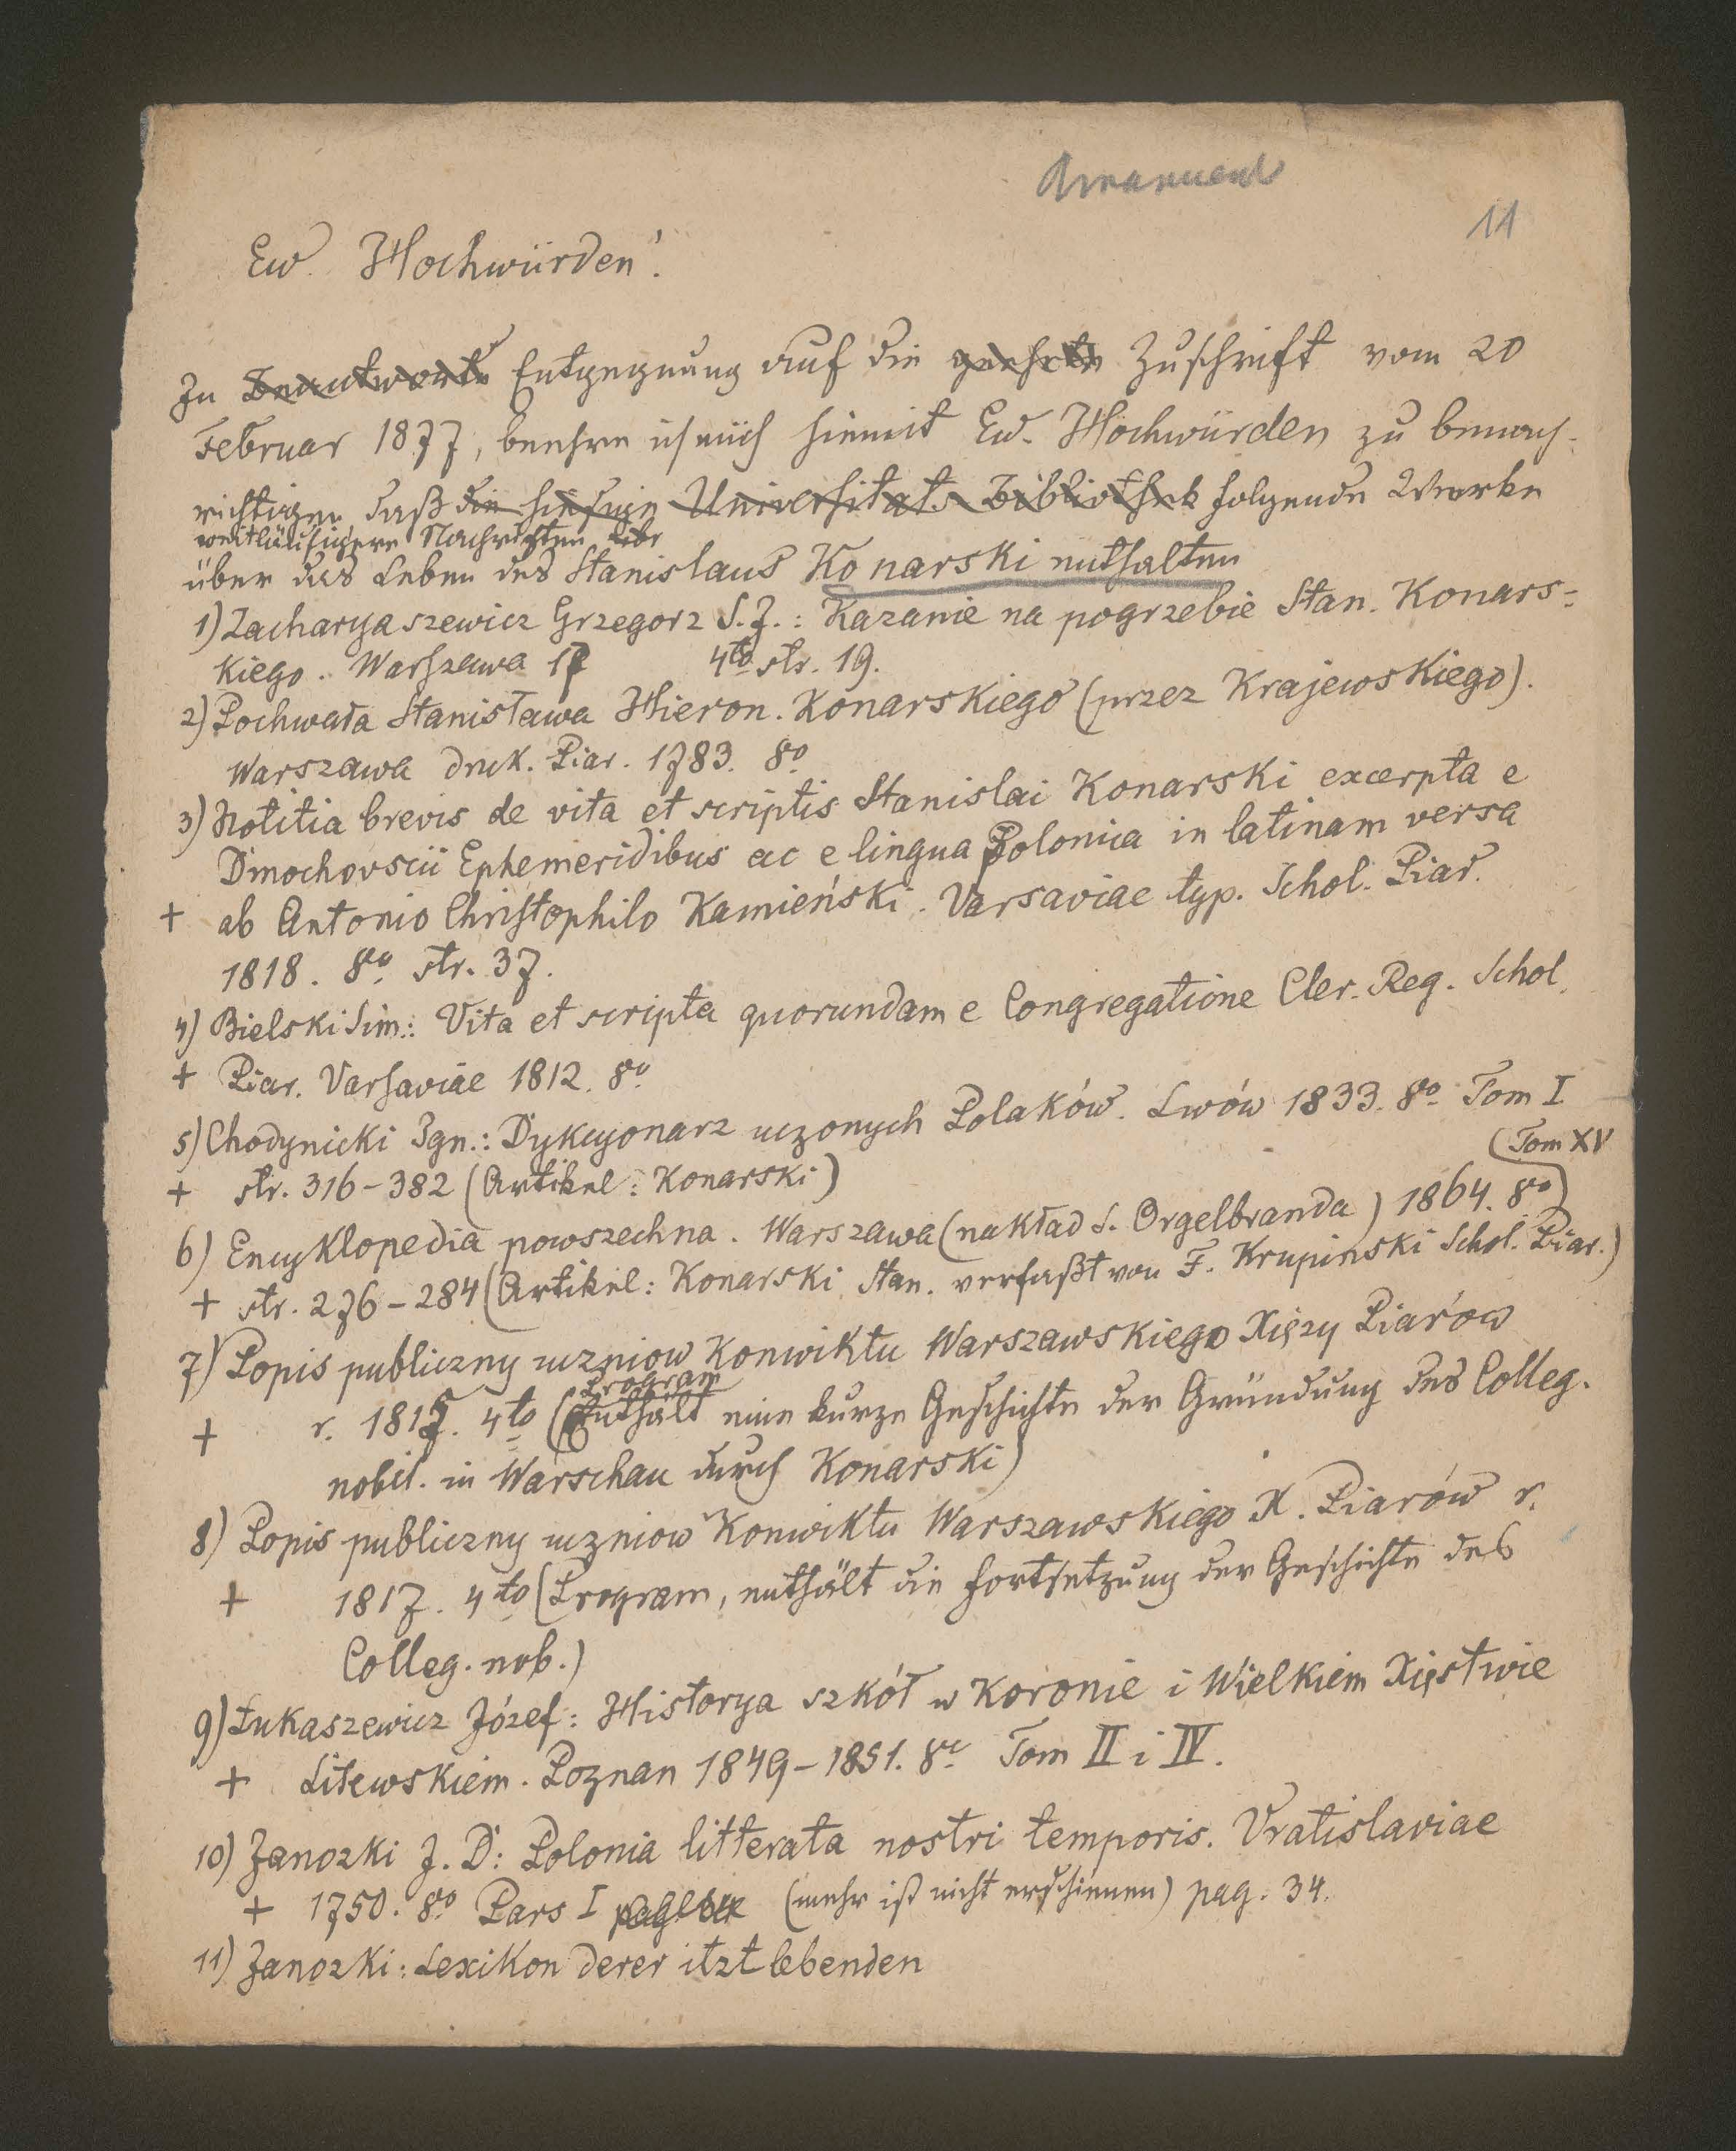 11
Ew. Hochwürden!
In Beantworte Entgegnung auf die geehrte Zuschrift vom 20
Februar 1877, beehre ich mich hiemit Ew. Hochwürden zu benach-
richtigen daß die hiesige Universitäts Bibliothek folgende Werke
weitläufigere Nachrichten über
über das Leben des Stanislaus Konarski enthalten
1) Zacharyaszewicz Grzegorz S.J.: Kazanie na pogrzebie Stan. Konars-
kiego. Warszawa 17 4to str. 19.
2) Pochwała Stanisława Hieron. Konarskiego (przez Krajewskiego).
Warszawa druk. Piar. 1783. 8o
3) Notitia brevis de vita et scriptis Stanislai Konarski excerpta e
Dmochovscii Ephemeridibus ac e lingua Polonica in latinam versa
+ ab Antonio Christophilo Kamieński. Varsaviae typ. Schol. Piar.
1818. 8o str. 37.
4) Bielski Sim.: Vita et scripta quorundam e Congregatione Cler. Reg. Schol.
+ Piar. Varsaviae 1812. 8o
5) Chodynicki Ign.: Dykcyonarz uczonych Polaków. Lwów 1833. 8o Tom I
+ str. 316-382 (Artikel: Konarski)
(Tom XV
6) Encyklopedia powszechna. Warszawa (nakład S. Orgelbranda) 1864. 8o)
+ str. 276-284 (Artikel: Konarski Stan. verfaßt von F. Krupinski Schol. Piar.)
7) Popis publiczny uczniow Konwiktu Warszawskiego Xięży Piarów
Program
+ r. 1815. 4to (Enthält eine kurze Geschichte der Gründung des Colleg.
nobil. in Warschau durch Konarski)
8) Popis publiczny uczniow Konwiktu Warszawskiego X. Piarów r.
+ 1817. 4to (Program, enthält die Fortsetzung der Geschichte des
Colleg. nob.)
9) Łukaszewicz Józef: Historya szkół w Koronie i Wielkiem Xięstwie
+ Litewskiem. Poznan 1849-1851. 8o Tom II i IV.
10) Janozki J. D: Polonia litterata nostri temporis. Vratislaviae
+ 1750. 8o Pars I (mehr ist nicht erschienen) pag. 34.
11) Janozki: Lexikon derer itzt lebenden